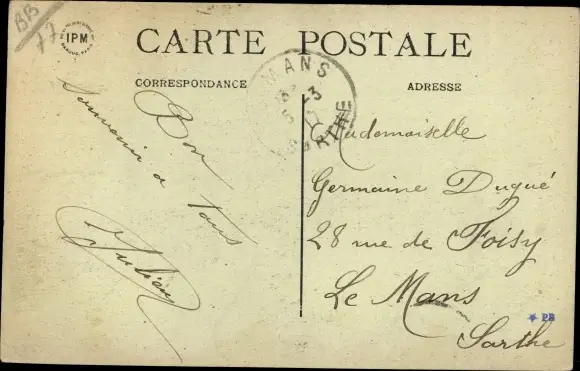 BB
77
IPM
CARTE POSTALE
CORRESPONDANCE
ADRESSE
MANS
5 -3
17
SARTHE
Bon
Souvenir a tous
Julien
Mademoiselle
Germaine Dugué
28 rue de Foisy
Le Mans
Sarthe
PB